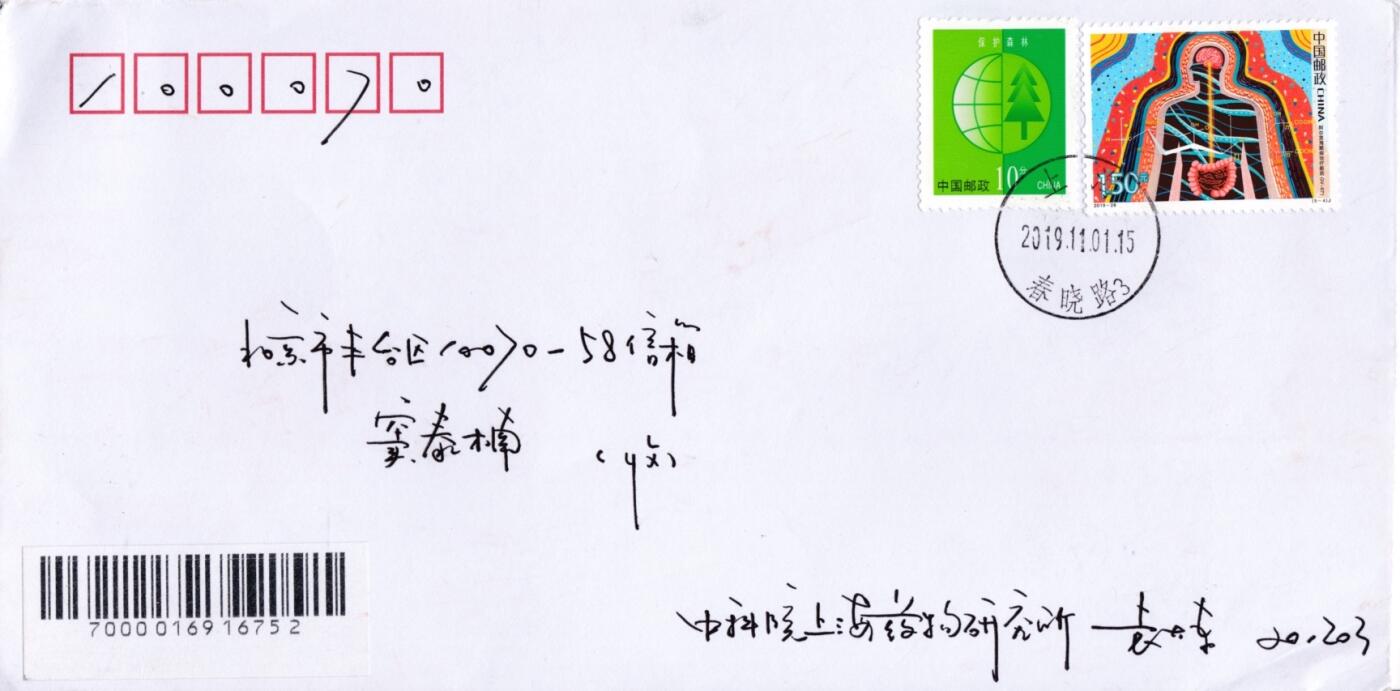 100070
保护森林
中国邮政 10分 CHINA
中国邮政 CHINA
150元
2019-26
2019.11.01.15
春晓路3
北京市丰台区100070-58信箱
窦泰楠 (收)
70000169 16752
中科院上海药物研究所
201203